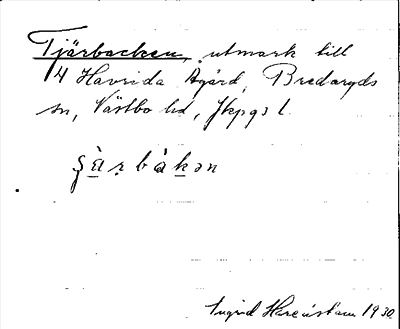 Tjärbacken, utmark till
4 Havrida Agård, Bredaryds
sn, Västbo hd, Jkpgs l.
ʂàrbàkən
Ingrid 1930